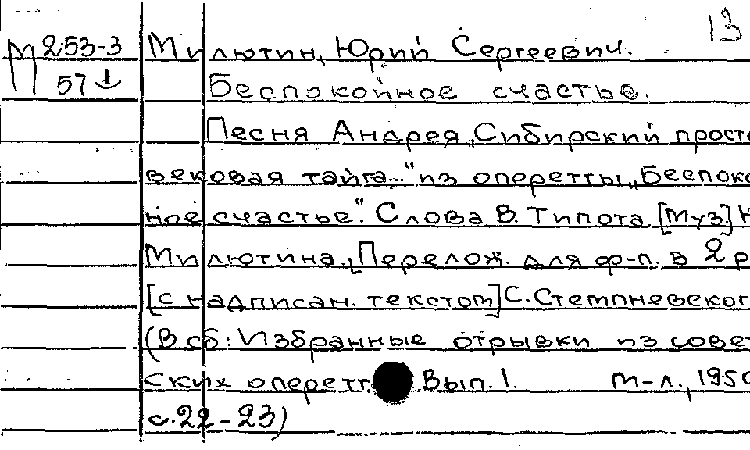 13
М 253-3 Милютин, Юрий Сергеевич.
57 Беспокойное счастье.
Песня Андрея „Сибирский просто
вековая тайга..." из оперетты „Беспоко
ное счастье". Слова В. Типота [Муз]
Милютина. [Перелож. для ф-п. в 2 р
[с надписан. текстом] С. Стемпневског
(В сб: Избранные отрывки из совет
ских оперетт. Вып. 1. М-Л., 195
с. 22-23)